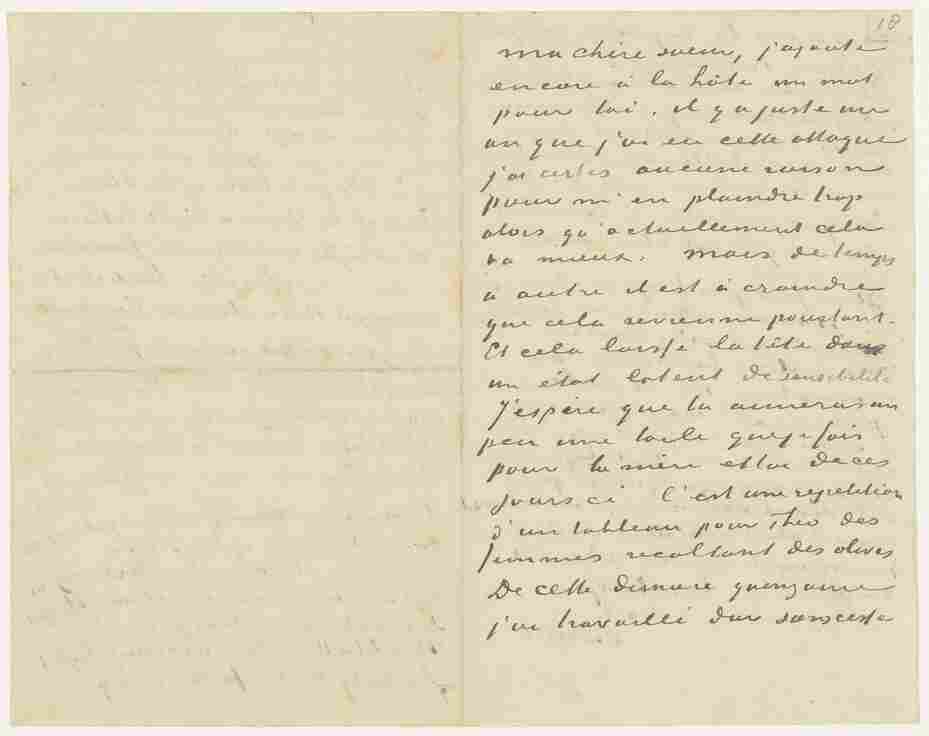 18
ma chère soeur, j'ajoute
encore à la hâte un mot
pour toi. il y a juste un
an que j'ai eu cette attaque
j'ai certes aucune raison
pour m'en plaindre trop
alors qu'actuellement cela
va mieux. mais de temps
à autre il est à craindre
que cela revienne pourtant.
Et cela laisse la tête dans
un état latent de sensibilité
J'espère que tu aimeras un
peu une toile que je fais
pour la mère et toi de ces
jours ci C'est une repetition
d'un tableau pour Theo des
femmes recoltant des olives
De cette dernière quinzaine
j'ai travaillé dur sans cesse